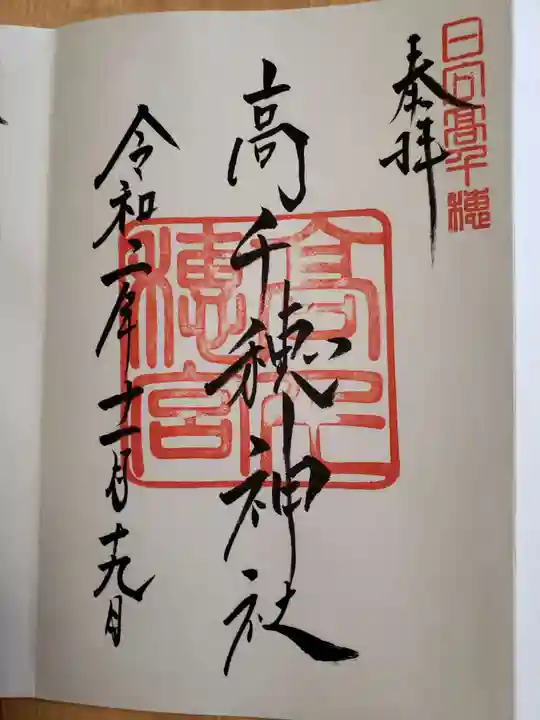 日向高千穂
奉拝
高千穂神社
高千穂宮
令和二年十一月十九日